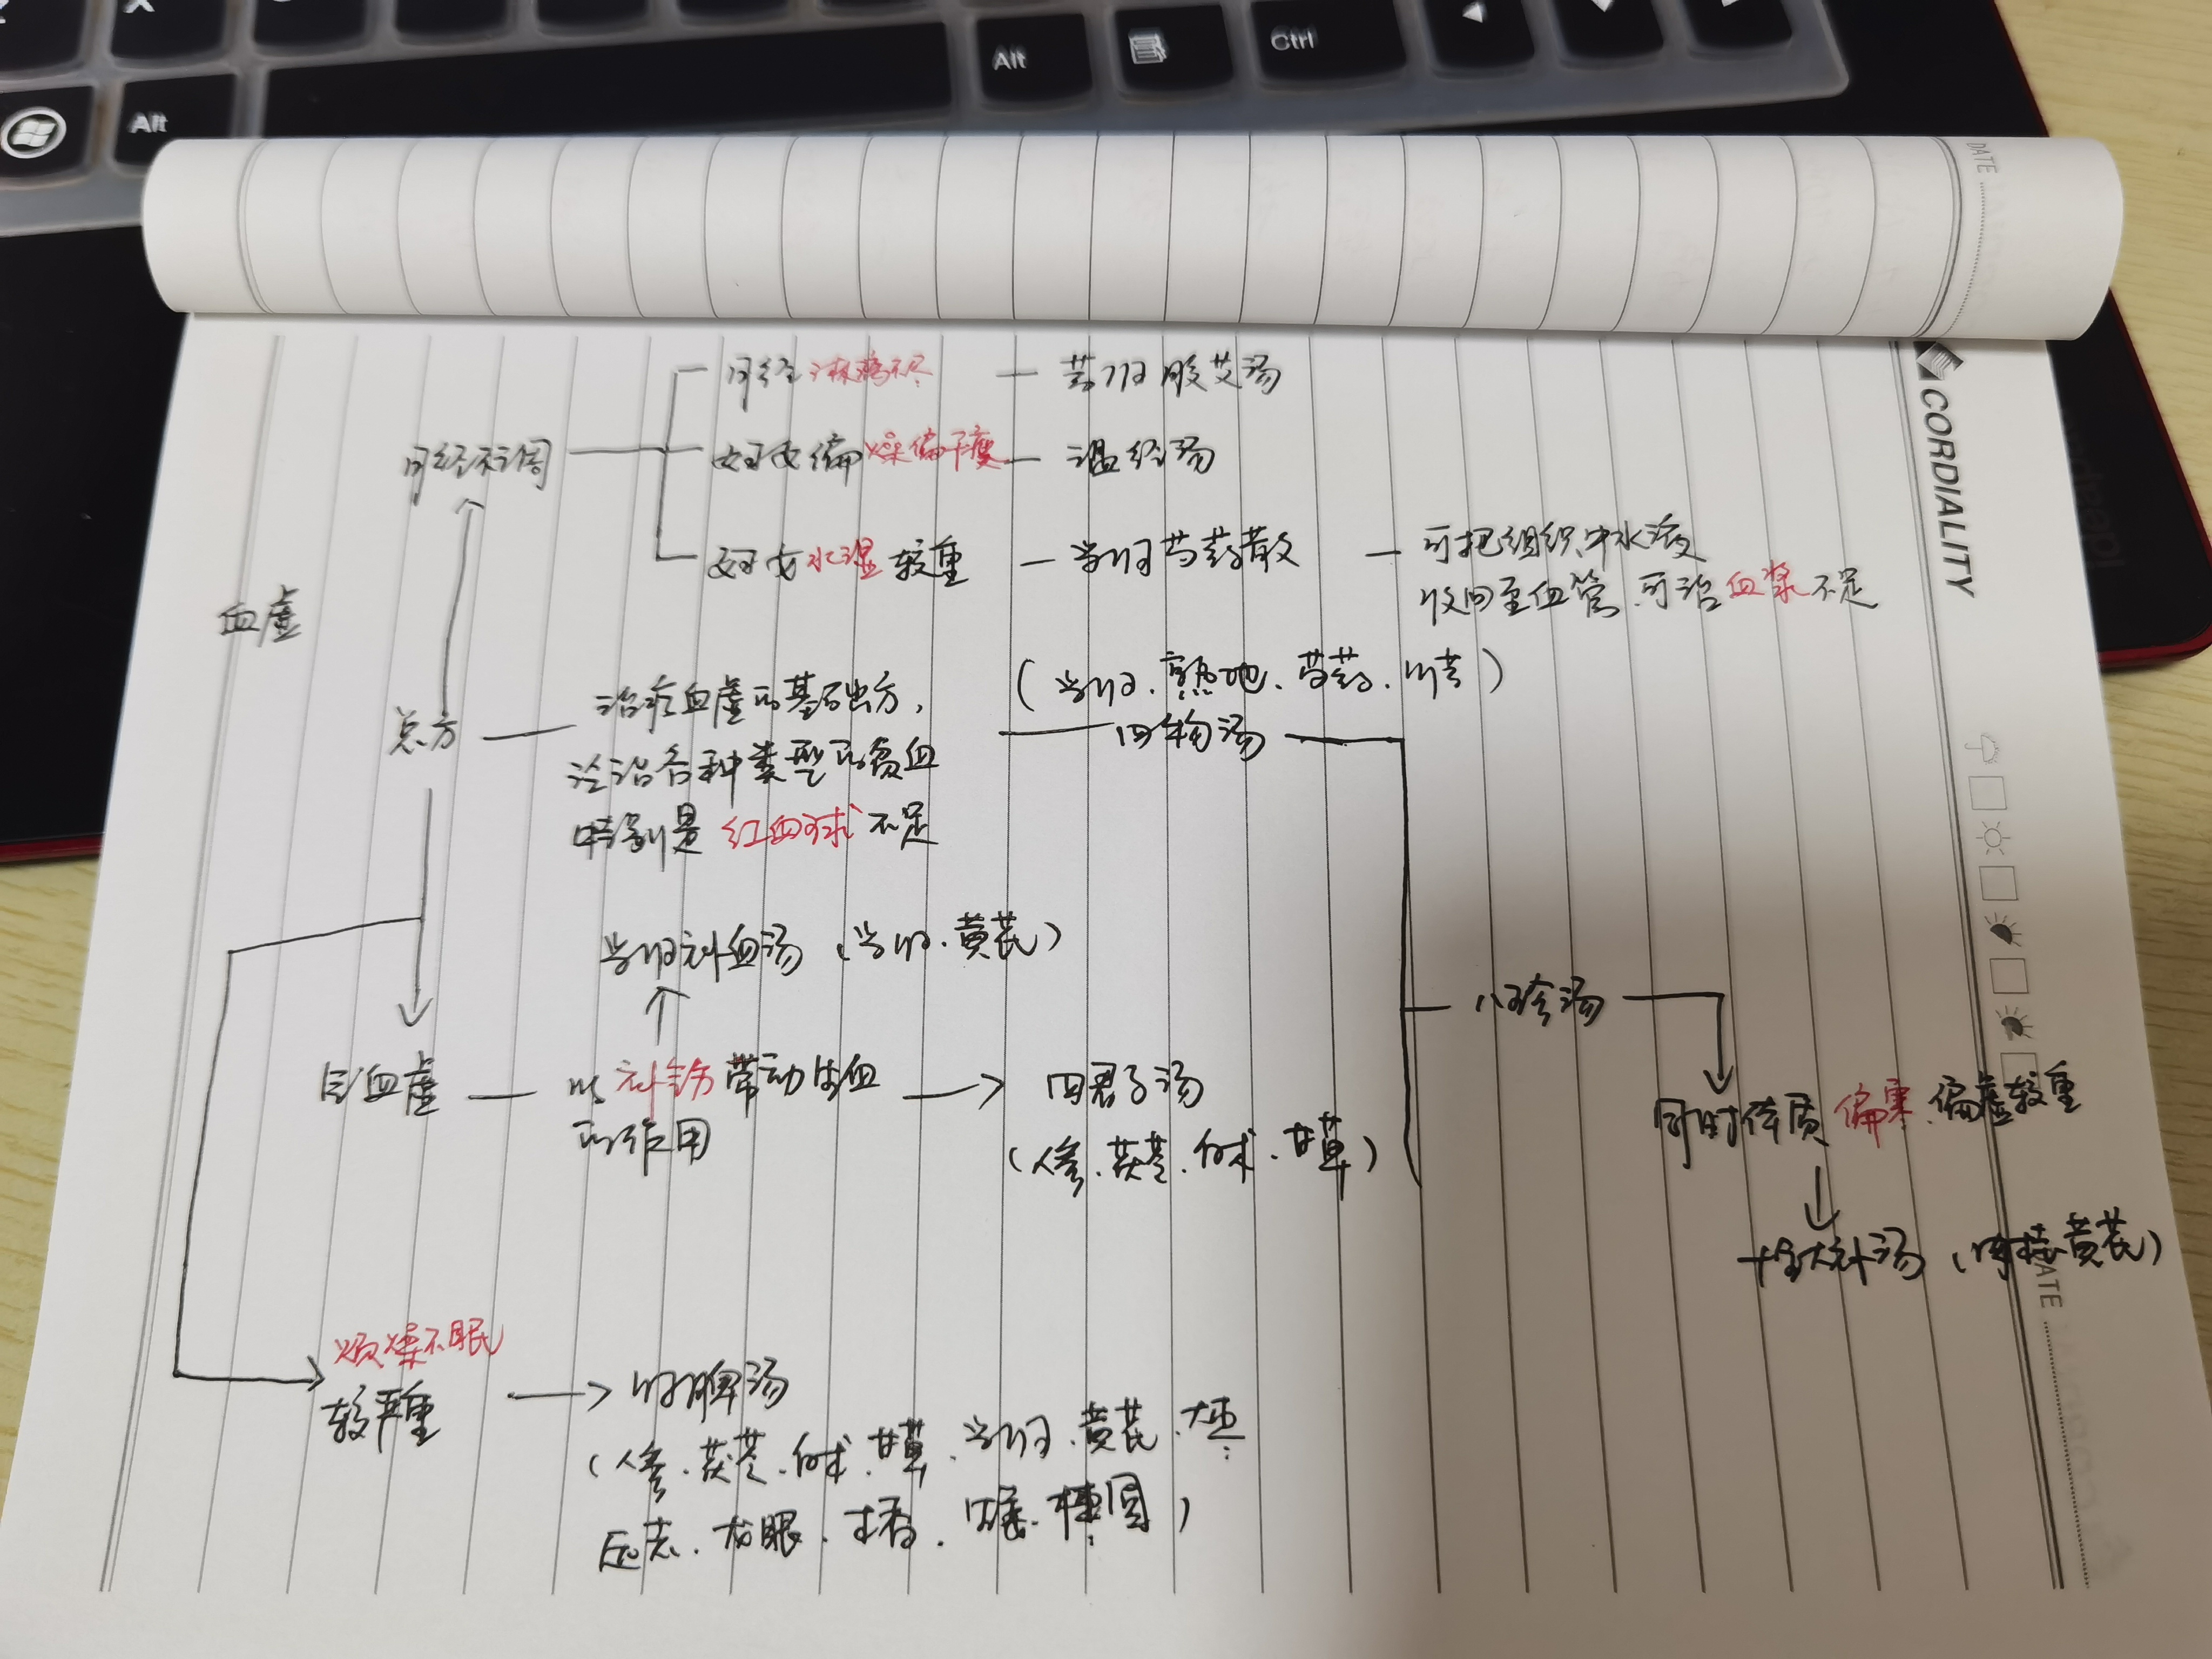 Alt
Ctrl
Alt
DATE
CORDIALITY
月经淋漓不尽 — 芎归胶艾汤
月经不调
妇女偏燥偏干瘦 — 温经汤
妇女水湿较重 — 当归芍药散 — 可把组织中水液
收回至血管,可治血浆不足
血虚
总方
治疗血虚的基础方,
泛治各种类型的贫血
特别是红血球不足
(当归.熟地.芍药.川芎)
四物汤
当归补血汤(当归.黄芪)
气血虚 — 以补气药带动生血
的作用
四君子汤
(人参.茯苓.白术.甘草)
八珍汤
同时体质偏寒.偏虚较重
十全大补汤(肉桂黄芪)
烦燥不眠
较严重
归脾汤
(人参.茯苓.白术.甘草.当归.黄芪.大枣
远志.龙眼.木香.枣仁.桂圆)
DATE